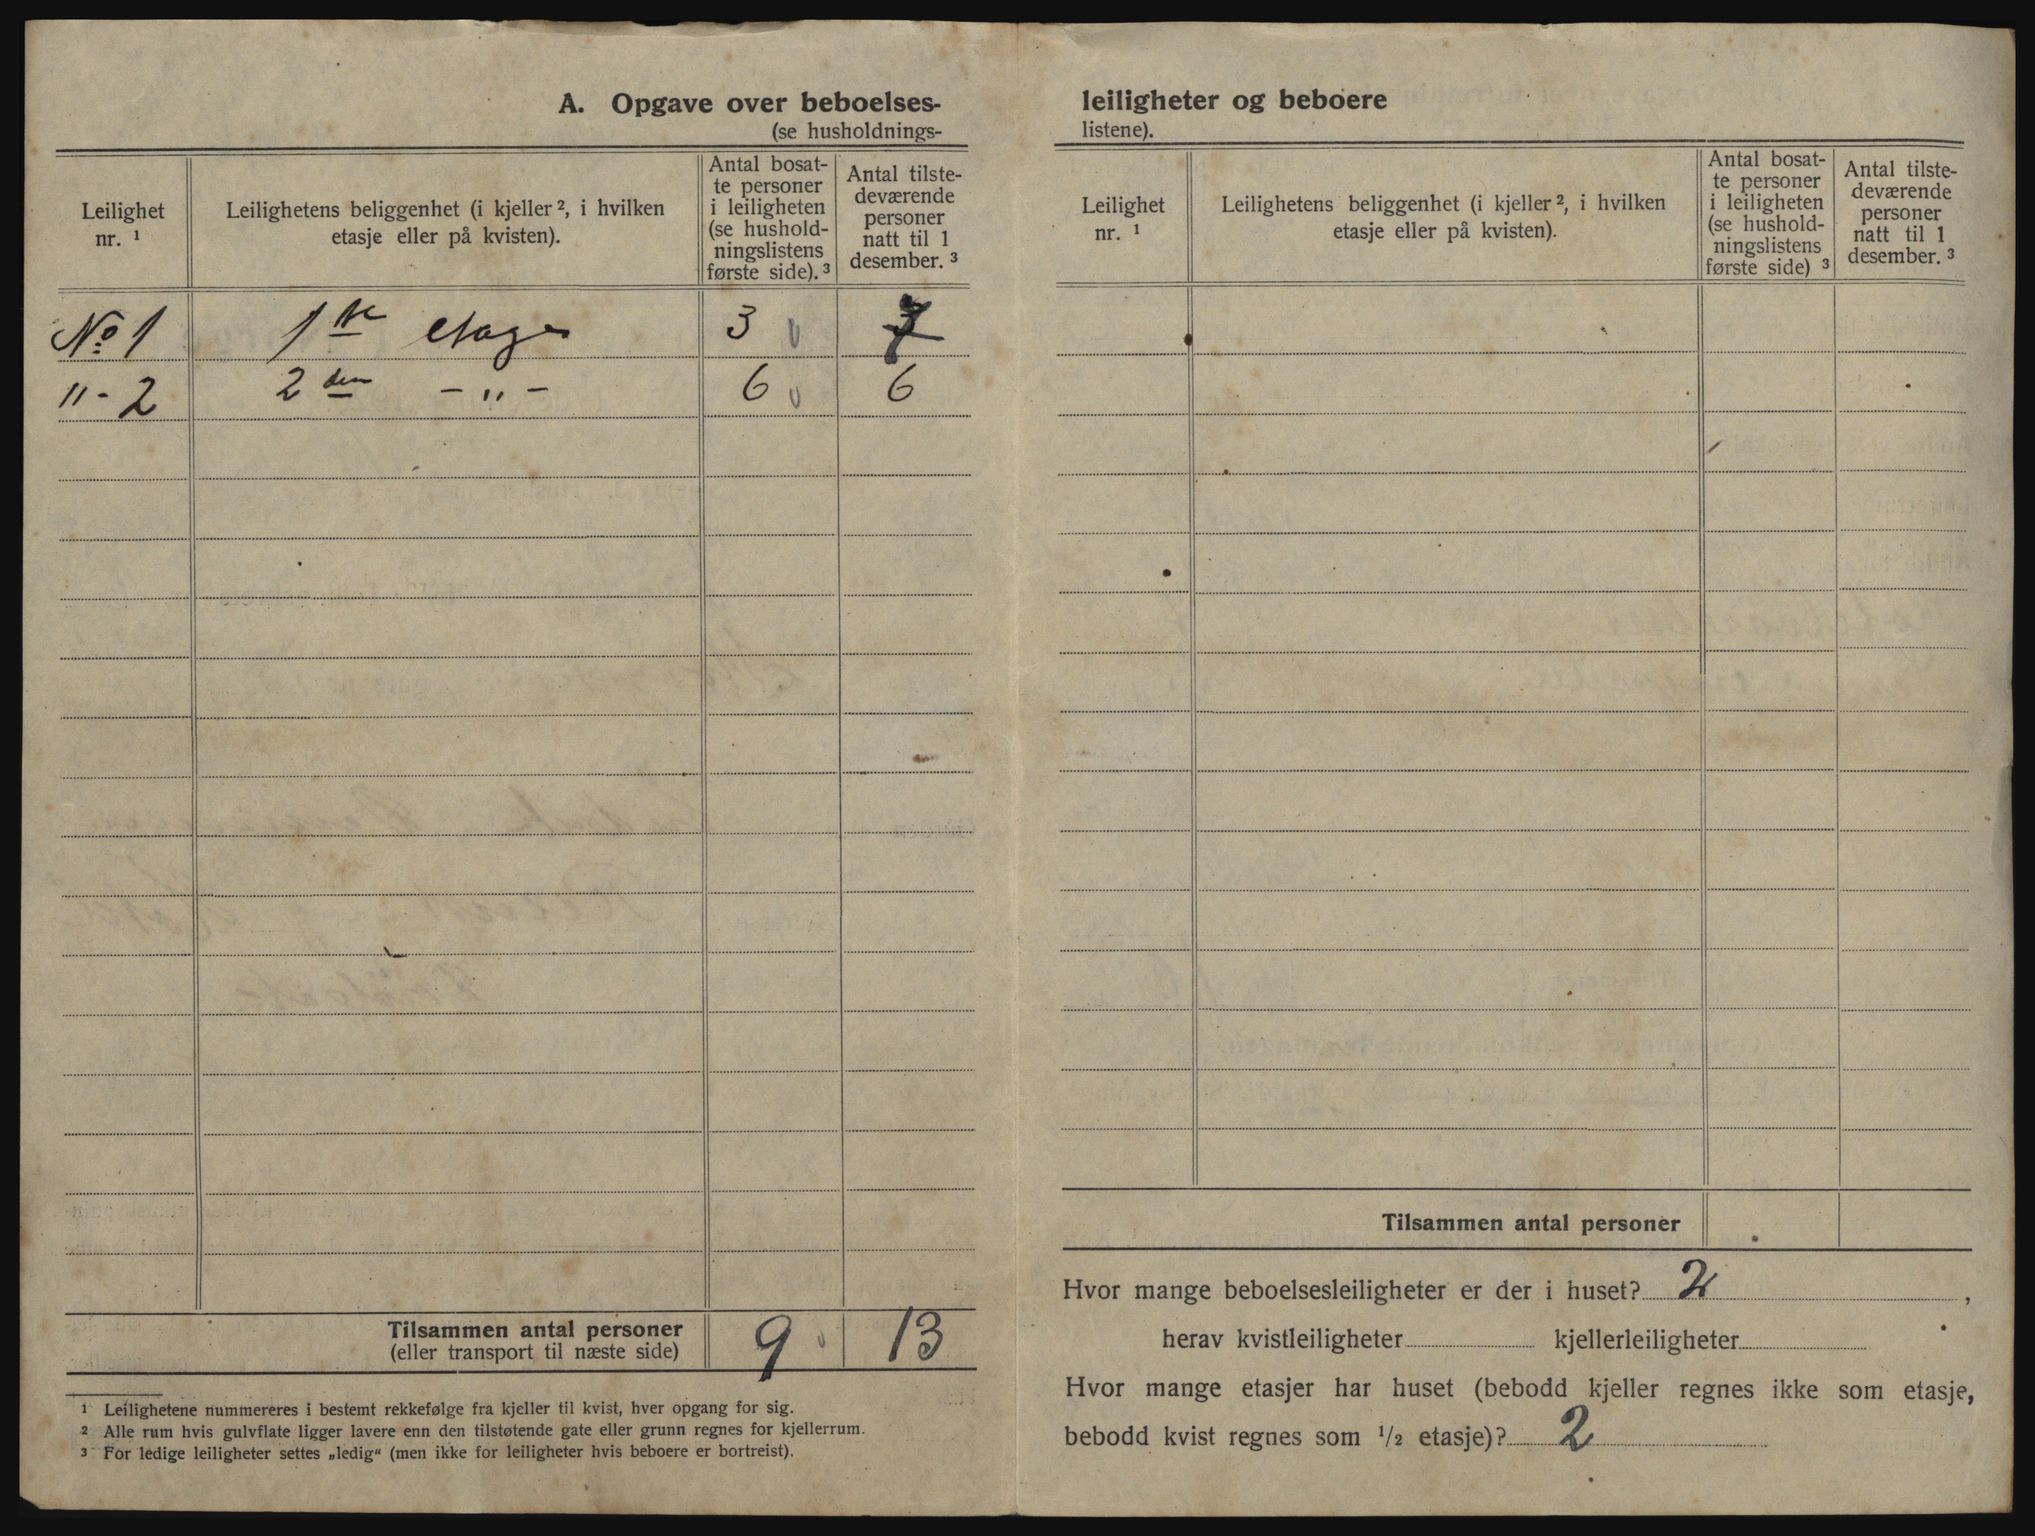 A. Opgave over beboelses-
(se husholdnings-
Leilighet nr. ¹
Leilighetens beliggenhet (i kjeller ², i hvilken etasje eller på kvisten).
Antal bosat-
te personer
i leiligheten
(se hushold-
ningslistens
første side). ³
Antal tilste-
deværende
personer
natt til 1
desember. ³
No 1 1ste etage 3
"- 2 2den - „ - 6 6
Tilsammen antal personer 9 13
(eller transport til næste side)
¹ Leilighetene nummereres i bestemt rekkefølge fra kjeller til kvist, hver opgang for sig.
² Alle rum hvis gulvflate ligger lavere enn den tilstøtende gate eller grunn regnes for kjellerrum.
³ For ledige leiligheter settes „ledig“ (men ikke for leiligheter hvis beboere er bortreist).
leiligheter og beboere
listene).
Leilighet nr. ¹
Leilighetens beliggenhet (i kjeller ², i hvilken etasje eller på kvisten).
Antal bosat-
te personer
i leiligheten
(se hushold-
ningslistens
første side) ³
Antal tilste-
deværende
personer
natt til 1
desember. ³
Tilsammen antal personer
Hvor mange beboelsesleiligheter er der i huset? 2 ,
herav kvistleiligheter kjellerleiligheter
Hvor mange etasjer har huset (bebodd kjeller regnes ikke som etasje,
bebodd kvist regnes som ¹/₂ etasje)? 2